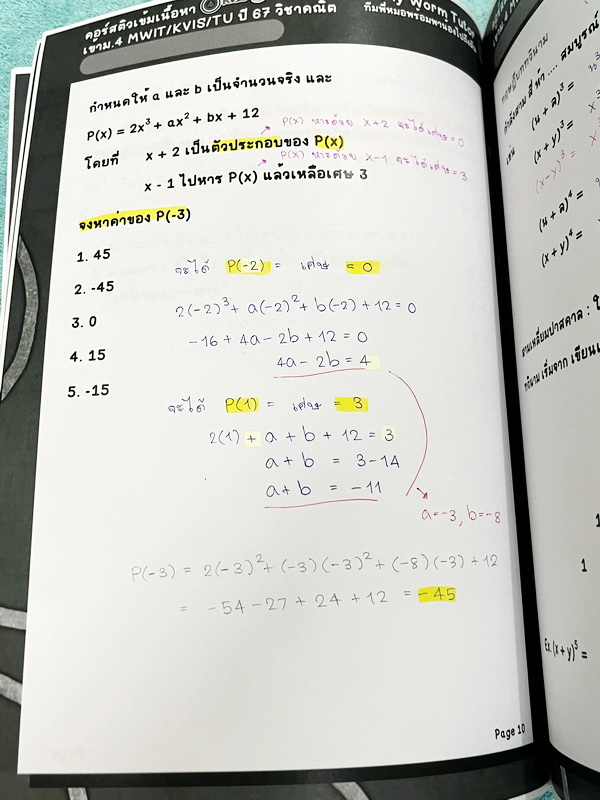 คอร์สติวเข้มเนื้อหา
เข้าม.4 MWIT/KVIS/TU ปี 67 วิชาคณิต
Worm Tutor
ทีมพี่หมอพร้อมพาน้องไปถึงฝัน
กำหนดให้ a และ b เป็นจำนวนจริง และ
P(x) = 2x³ + ax² + bx + 12
P(x) หารด้วย x+2 จะได้เศษ = 0
โดยที่ x + 2 เป็นตัวประกอบของ P(x)
P(x) หารด้วย x-1 จะได้เศษ = 3
x - 1 ไปหาร P(x) แล้วเหลือเศษ 3
จงหาค่าของ P(-3)
1. 45
2. -45
3. 0
4. 15
5. -15
จะได้ P(-2) = เศษ = 0
2(-2)³ + a(-2)² + b(-2) + 12 = 0
-16 + 4a - 2b + 12 = 0
4a - 2b = 4
จะได้ P(1) = เศษ = 3
2(1) + a + b + 12 = 3
a + b = 3 - 14
a + b = -11
a = -3, b = -8
P(-3) = 2(-3)² + (-3)(-3)² + (-8)(-3) + 12
= -54 - 27 + 24 + 12 = -45
Page 10
สมบูรณ์
(น + ล)³ =
เช่น
(x + y)³ =
(x - y)³ =
(น + ล)⁴ =
(x + y)⁴ =
สามเหลี่ยมปาสคาล :
ทวินาม เริ่มจาก เขียนเ
1
1
Ex. (x + y)⁵ =